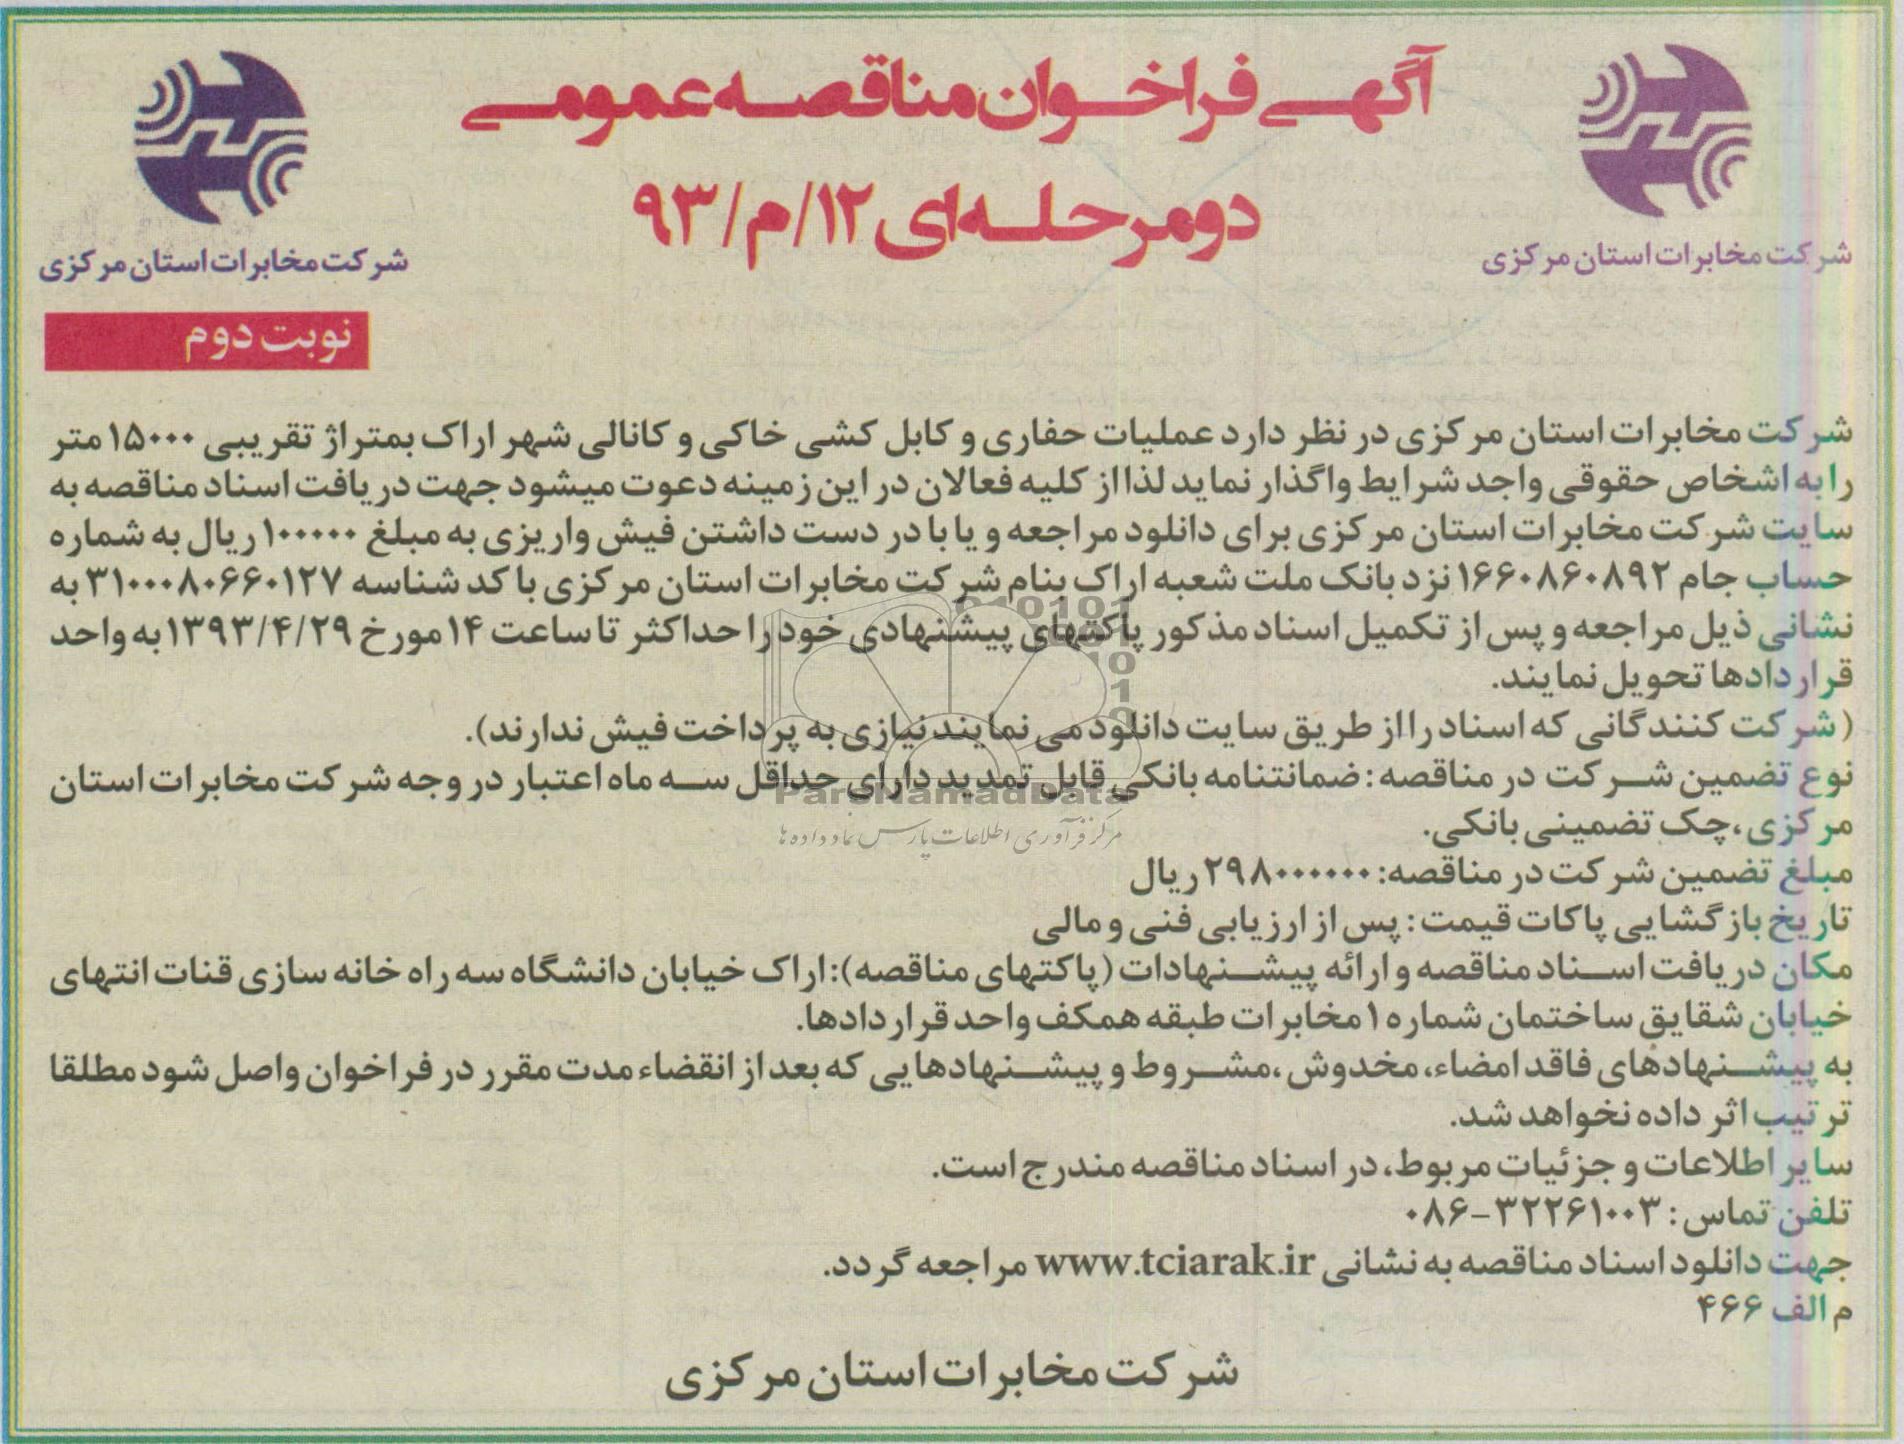 آگهی فراخوان مناقصه عمومی
دومرحله‌ای ۱۲/م/۹۳
شرکت مخابرات استان مرکزی
شرکت مخابرات استان مرکزی
نوبت دوم
شرکت مخابرات استان مرکزی در نظر دارد عملیات حفاری و کابل کشی خاکی و کانالی شهر اراک بمتراژ تقریبی ۱۵۰۰۰ متر
را به اشخاص حقوقی واجد شرایط واگذار نماید لذا از کلیه فعالان در این زمینه دعوت میشود جهت دریافت اسناد مناقصه به
سایت شرکت مخابرات استان مرکزی برای دانلود مراجعه و یا با در دست داشتن فیش واریزی به مبلغ ۱۰۰۰۰۰ ریال به شماره
حساب جام ۱۶۶۰۸۶۰۸۹۲ نزد بانک ملت شعبه اراک بنام شرکت مخابرات استان مرکزی با کد شناسه ۳۱۰۰۰۸۰۶۶۰۱۲۷ به
نشانی ذیل مراجعه و پس از تکمیل اسناد مذکور پاکتهای پیشنهادی خود را حداکثر تا ساعت ۱۴ مورخ ۱۳۹۳/۴/۲۹ به واحد
قراردادها تحویل نمایند.
( شرکت کنندگانی که اسناد را از طریق سایت دانلود می نمایند نیازی به پرداخت فیش ندارند).
نوع تضمین شرکت در مناقصه: ضمانتنامه بانکی قابل تمدید دارای حداقل سه ماه اعتبار در وجه شرکت مخابرات استان
مرکزی، چک تضمینی بانکی.
مبلغ تضمین شرکت در مناقصه: ۲۹۸۰۰۰۰۰۰ ریال
تاریخ بازگشایی پاکات قیمت: پس از ارزیابی فنی و مالی
مکان دریافت اسناد مناقصه و ارائه پیشنهادات (پاکتهای مناقصه): اراک خیابان دانشگاه سه راه خانه سازی قنات انتهای
خیابان شقایق ساختمان شماره ۱ مخابرات طبقه همکف واحد قراردادها.
به پیشنهادهای فاقد امضاء، مخدوش ،مشروط و پیشنهادهایی که بعد از انقضاء مدت مقرر در فراخوان واصل شود مطلقا
ترتیب اثر داده نخواهد شد.
سایر اطلاعات و جزئیات مربوط، در اسناد مناقصه مندرج است.
تلفن تماس: ۳۲۲۶۱۰۰۳-۰۸۶
جهت دانلود اسناد مناقصه به نشانی www.tciarak.ir مراجعه گردد.
م الف ۴۶۶
شرکت مخابرات استان مرکزی
ParsNamadData
مرکز فرآوری اطلاعات پارس نماد داده ها